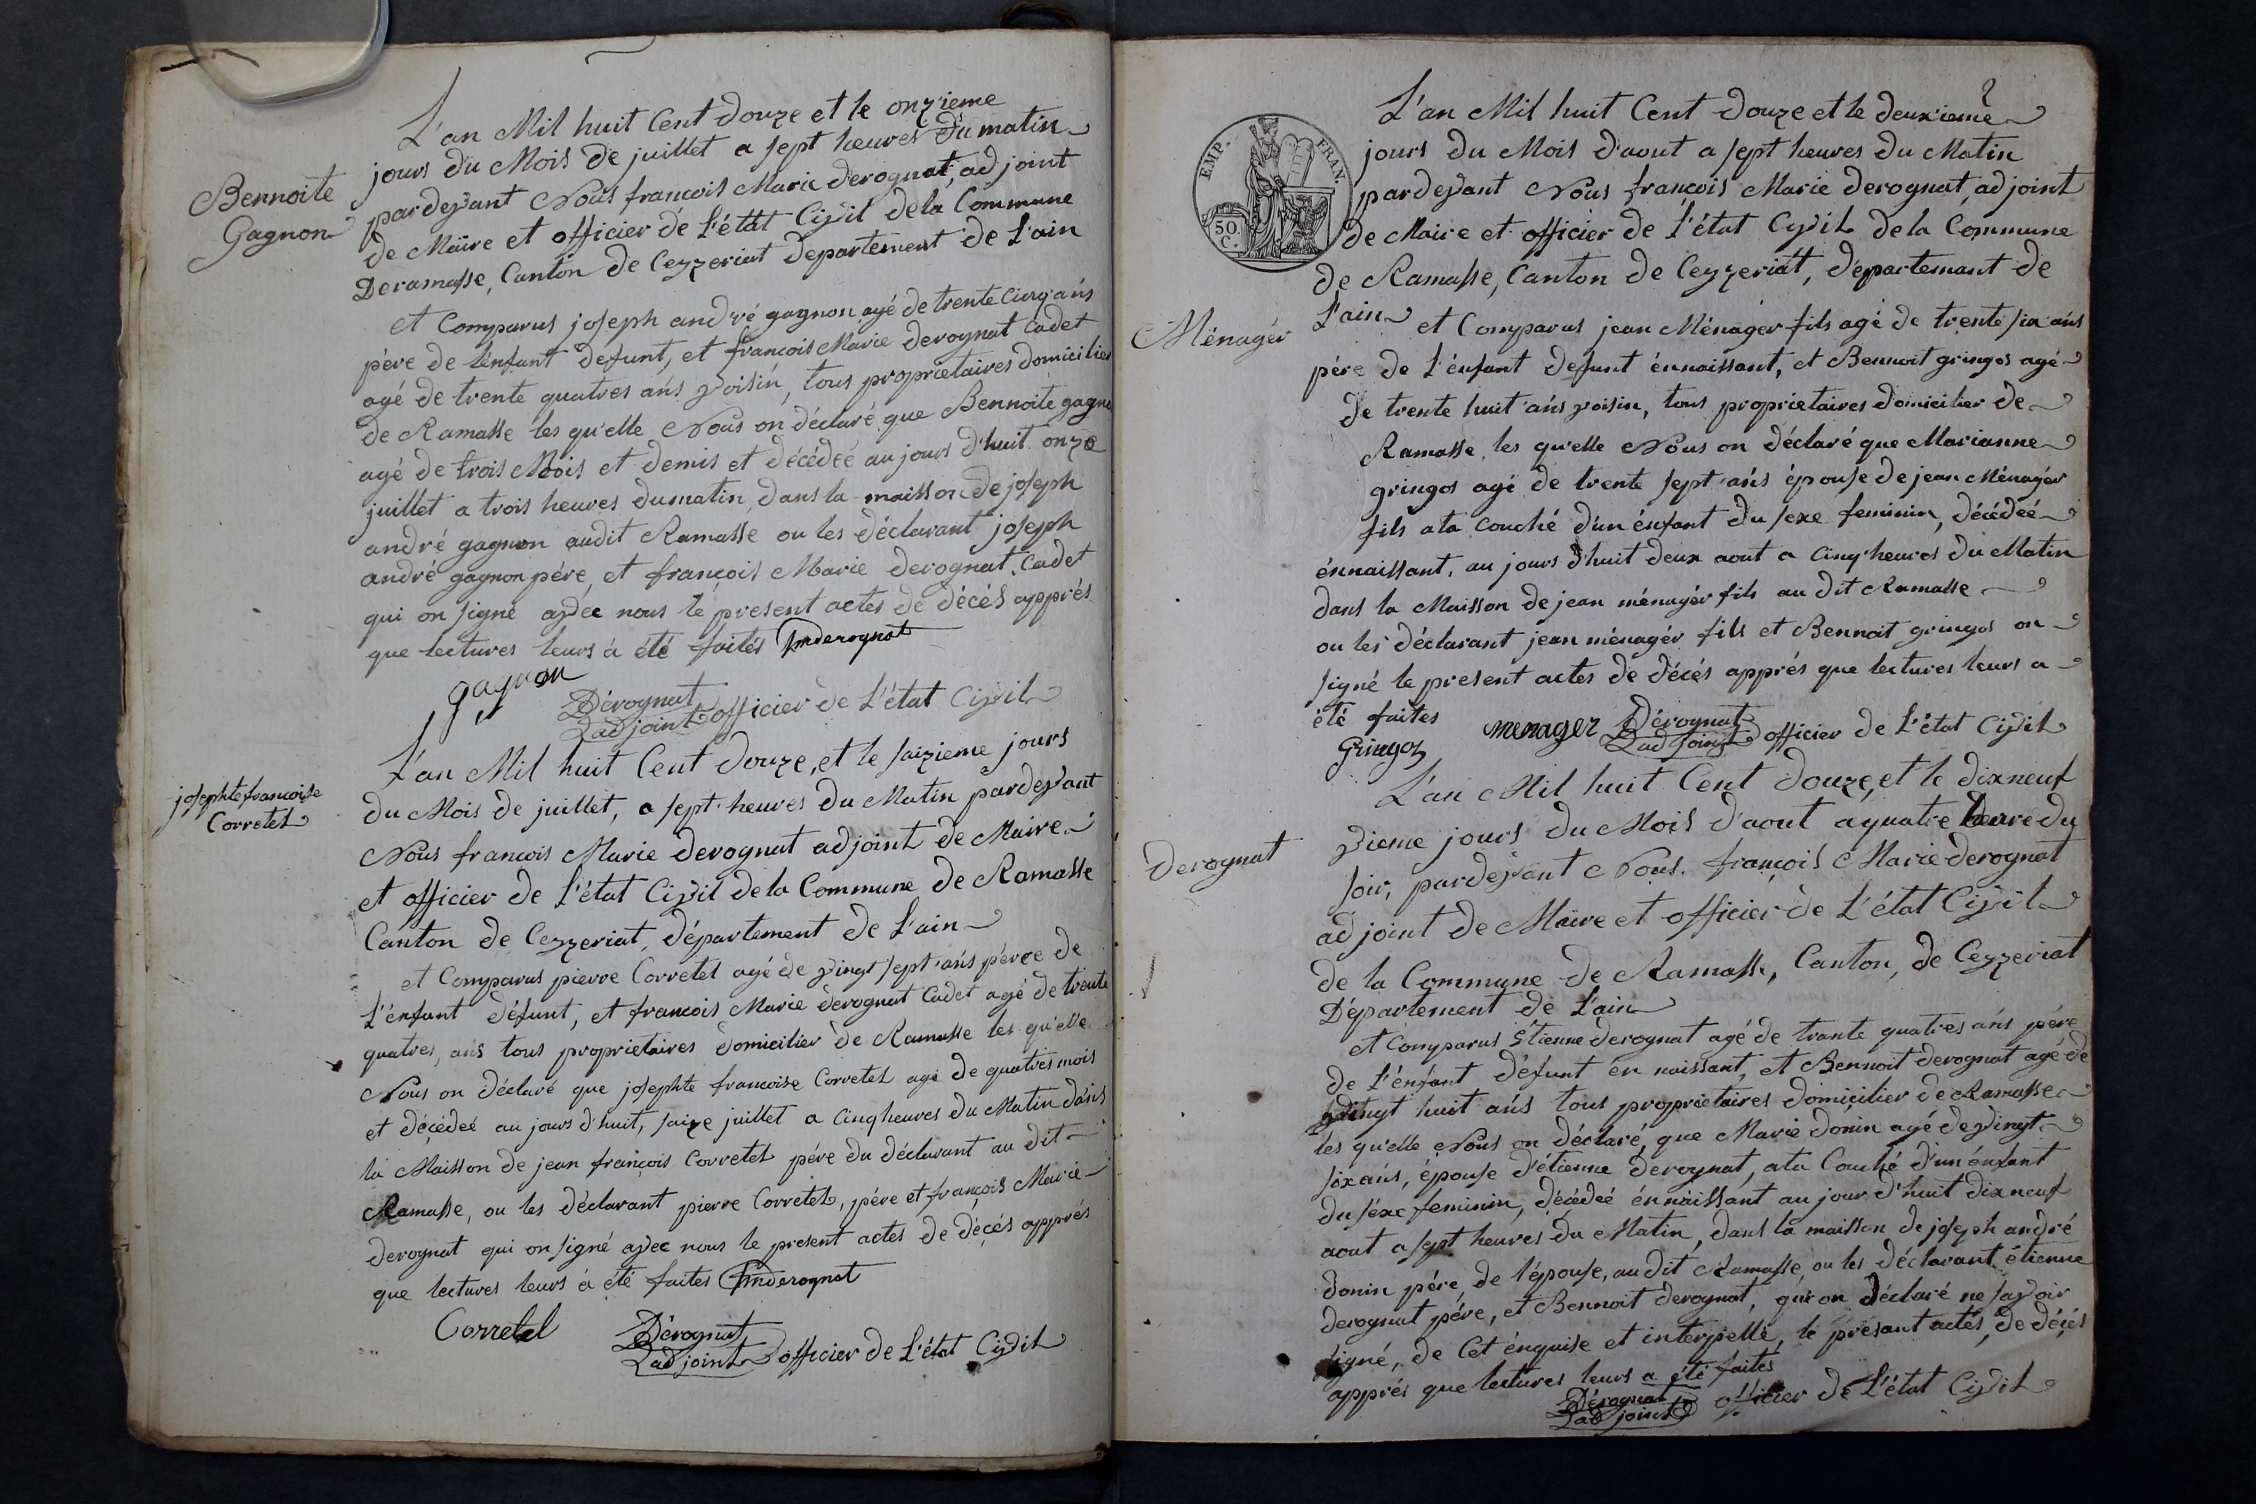 Bennoite
Gagnon
L'an Mil huit Cent douze et le onzieme
jours du Mois de juillet a sept heures du matin
pardevant Nous francois Marie derognat, adjoint
de Maire et officier de L'état Civil dela Commune
Deramasse, Canton de Ceyzeriat Departement de L'ain
et Comparus joseph andré gagnon agé de trente Cinq ans
père de lenfant defunt, et francois Marie derognat Cadet
agé de trente quatres ans voisin, tous proprietaires domicilier
de Ramasse les qu'elle Nous on déclaré que Bennoite gagno
agé de trois Mois et demis et décédeé au jours d'huit onze
juillet a trois heures dumatin, dans la maisson de joseph
andré gagnon audit Ramasse ou les déclarant joseph
andré gagnon pére, et francois Marie derognat Cadet
qui on signé avec nous le present actes de décès apprés
que lectures leurs à été faites fmderognat
gagnon
Dérognat
adjoint officier de L'état Civil
josephte francoise
Corretel
L'an Mil huit Cent douze, et le saizieme jours
du Mois de juillet, a sept heures du Matin pardevant
Nous francois Marie derognat adjoint de Maire
et officier de L'état Civil dela Commune de Ramasse
Canton de Ceyzeriat, département de L'ain
et Comparus pierre Corretel agé de vingt sept ans pérce de
L'énfant défunt, et francois Marie derognat Cadet agé de trente
quatres, ans tous proprietaires domicilier de Ramasse les qu'elle
Nous on déclaré que josephte francoise Corretel agé de quatres mois
et décédeé au jours d'huit, saize juillet a Cinq heures du Matin dans
la Maisson de jean françois Corretel pére du déclarant au dit
Ramasse, ou les déclarant pierre Corretel, pére et françois Marie
derognat qui on signé avec nous le present actes de décés apprés
que lectures leurs à été faites fmderognat
Corretel
Dérognat
adjoint officier de L'état Civil
2
EMP. FRAN.
50
C.
Ménagér
L'an Mil huit Cent douze et le deuxieme
jours du Mois d'aout a sept heures du Matin
pardevant Nous françois Marie derognat, adjoint
de Maire et officier de L'état Civil dela Commune
de Ramasse, Canton de Ceyzeriat, departemant de
L'ain et Comparus jean Ménagér fils agé de trente six ans
pére de L'énfant defunt énnaissant, et Bennoit gringos agé
de trente huit ans voisin, tous proprietaires domicilier de
Ramasse, les qu'elle Nous on déclaré que Marianne
gringos agé de trente sept ans épouse de jean Ménagér
fils ata couché d'un énfant du sexe feminin, décédeé
énnaissant, au jours d'huit deux aout a Cinq heures du Matin
dans la Maisson de jean ménagér fils au dit Ramasse
ou les déclarant jean ménagér fils et Bennoit gringos on
signé le present actes de décés apprés que lectures leurs a
été faites menager Dérognat
Gringoz adjoint officier de L'état Civil
Derognat
L'an Mil huit Cent douze, et le dixneuf
vieme jours du Mois d'aout a quatre heure du
soir, pardevant Nous. françois Marie derognat
adjoint de Maire et officier de L'état Civil
de la Commune de Ramasse, Canton, de Ceyzeriat
Département de L'ain
et Comparus Étienne derognat agé de trante quatres ans pére
de L'énfant défunt én naissant, et Bennoit derognat agé de
vingt huit ans tous proprietaires domicilier de Ramasse
les qu'elle Nous on déclaré, que Marie donin agé de vingt
six ans, épouse d'étienne derognat, ata Couché d'un énfant
du séxe feminin, décédeé énnaissant au jour d'huit dixneuf
aout a sept heures du Matin, dans la maisson de joseph andré
donin pére, de l'épouse, au dit Ramasse, ou les déclarant étienne
derognat pére, et Bennoit derognat, qui on déclaré ne savoir
signé, de Cet énquise et interpellé, le présant actes, de décés
apprés que lectures leurs a été faites
Dérognat
adjoint officier de L'état Civil